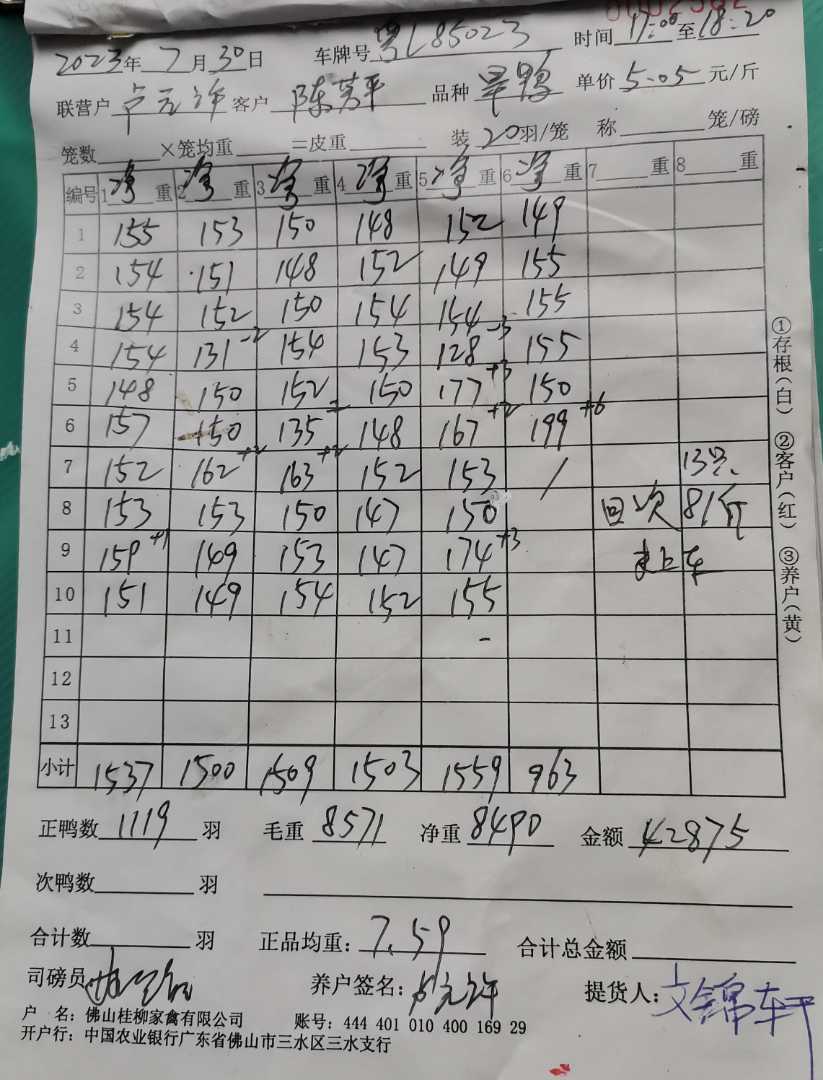 0002582
2023年7月30日 车牌号 粤L85023 时间 17:00至18:20
联营户 卢元许 客户 陈芳平 品种 旱鸭 单价 5.05 元/斤
笼数 ×笼均重 =皮重 装 20羽/笼 称 笼/磅
编号 1净重 2净重 3净重 4净重 5净重 6净重 7 重 8 重
1 155 153 150 148 152 149
2 154 151 148 152 149 155
3 154 152 150 154 154 155
4 154 131-2 154 153 128-3 155
5 148 150 152 150 177+3 150
6 157 150 135- 148 167+2 199+6
7 152 162+2 163+2 152 153 / 13只
8 153 153 150 147 150 回次 81斤
9 159+1 149 153 147 174+3 未上车
10 151 149 154 152 155
11 -
12
13
小计 1537 1500 1509 1503 1559 963
①存根(白) ②客户(红) ③养户(黄)
正鸭数 1119 羽 毛重 8571 净重 8490 金额 42875
次鸭数 羽
合计数 羽 正品均重: 7.59 合计总金额
司磅员 养户签名: 卢元许 提货人: 文锦轩
户 名: 佛山桂柳家禽有限公司 账号: 444 401 010 400 169 29
开户行: 中国农业银行广东省佛山市三水区三水支行